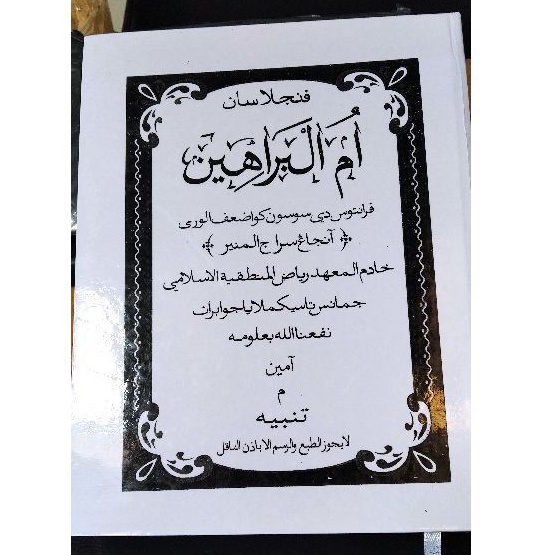 فنجلاسان
أم البراهين
فرانتوس دبي سوسون كو اضعف الورى
﴿ آنجاڠ سراج المنير ﴾
خادم المعهد رياض المنطقية الاسلامي
جمانس تاسيكملايا جوابران
نفعنا الله بعلومه
آمين
م
تنبيه
لا يجوز الطبع والرسم الا باذن الناقل